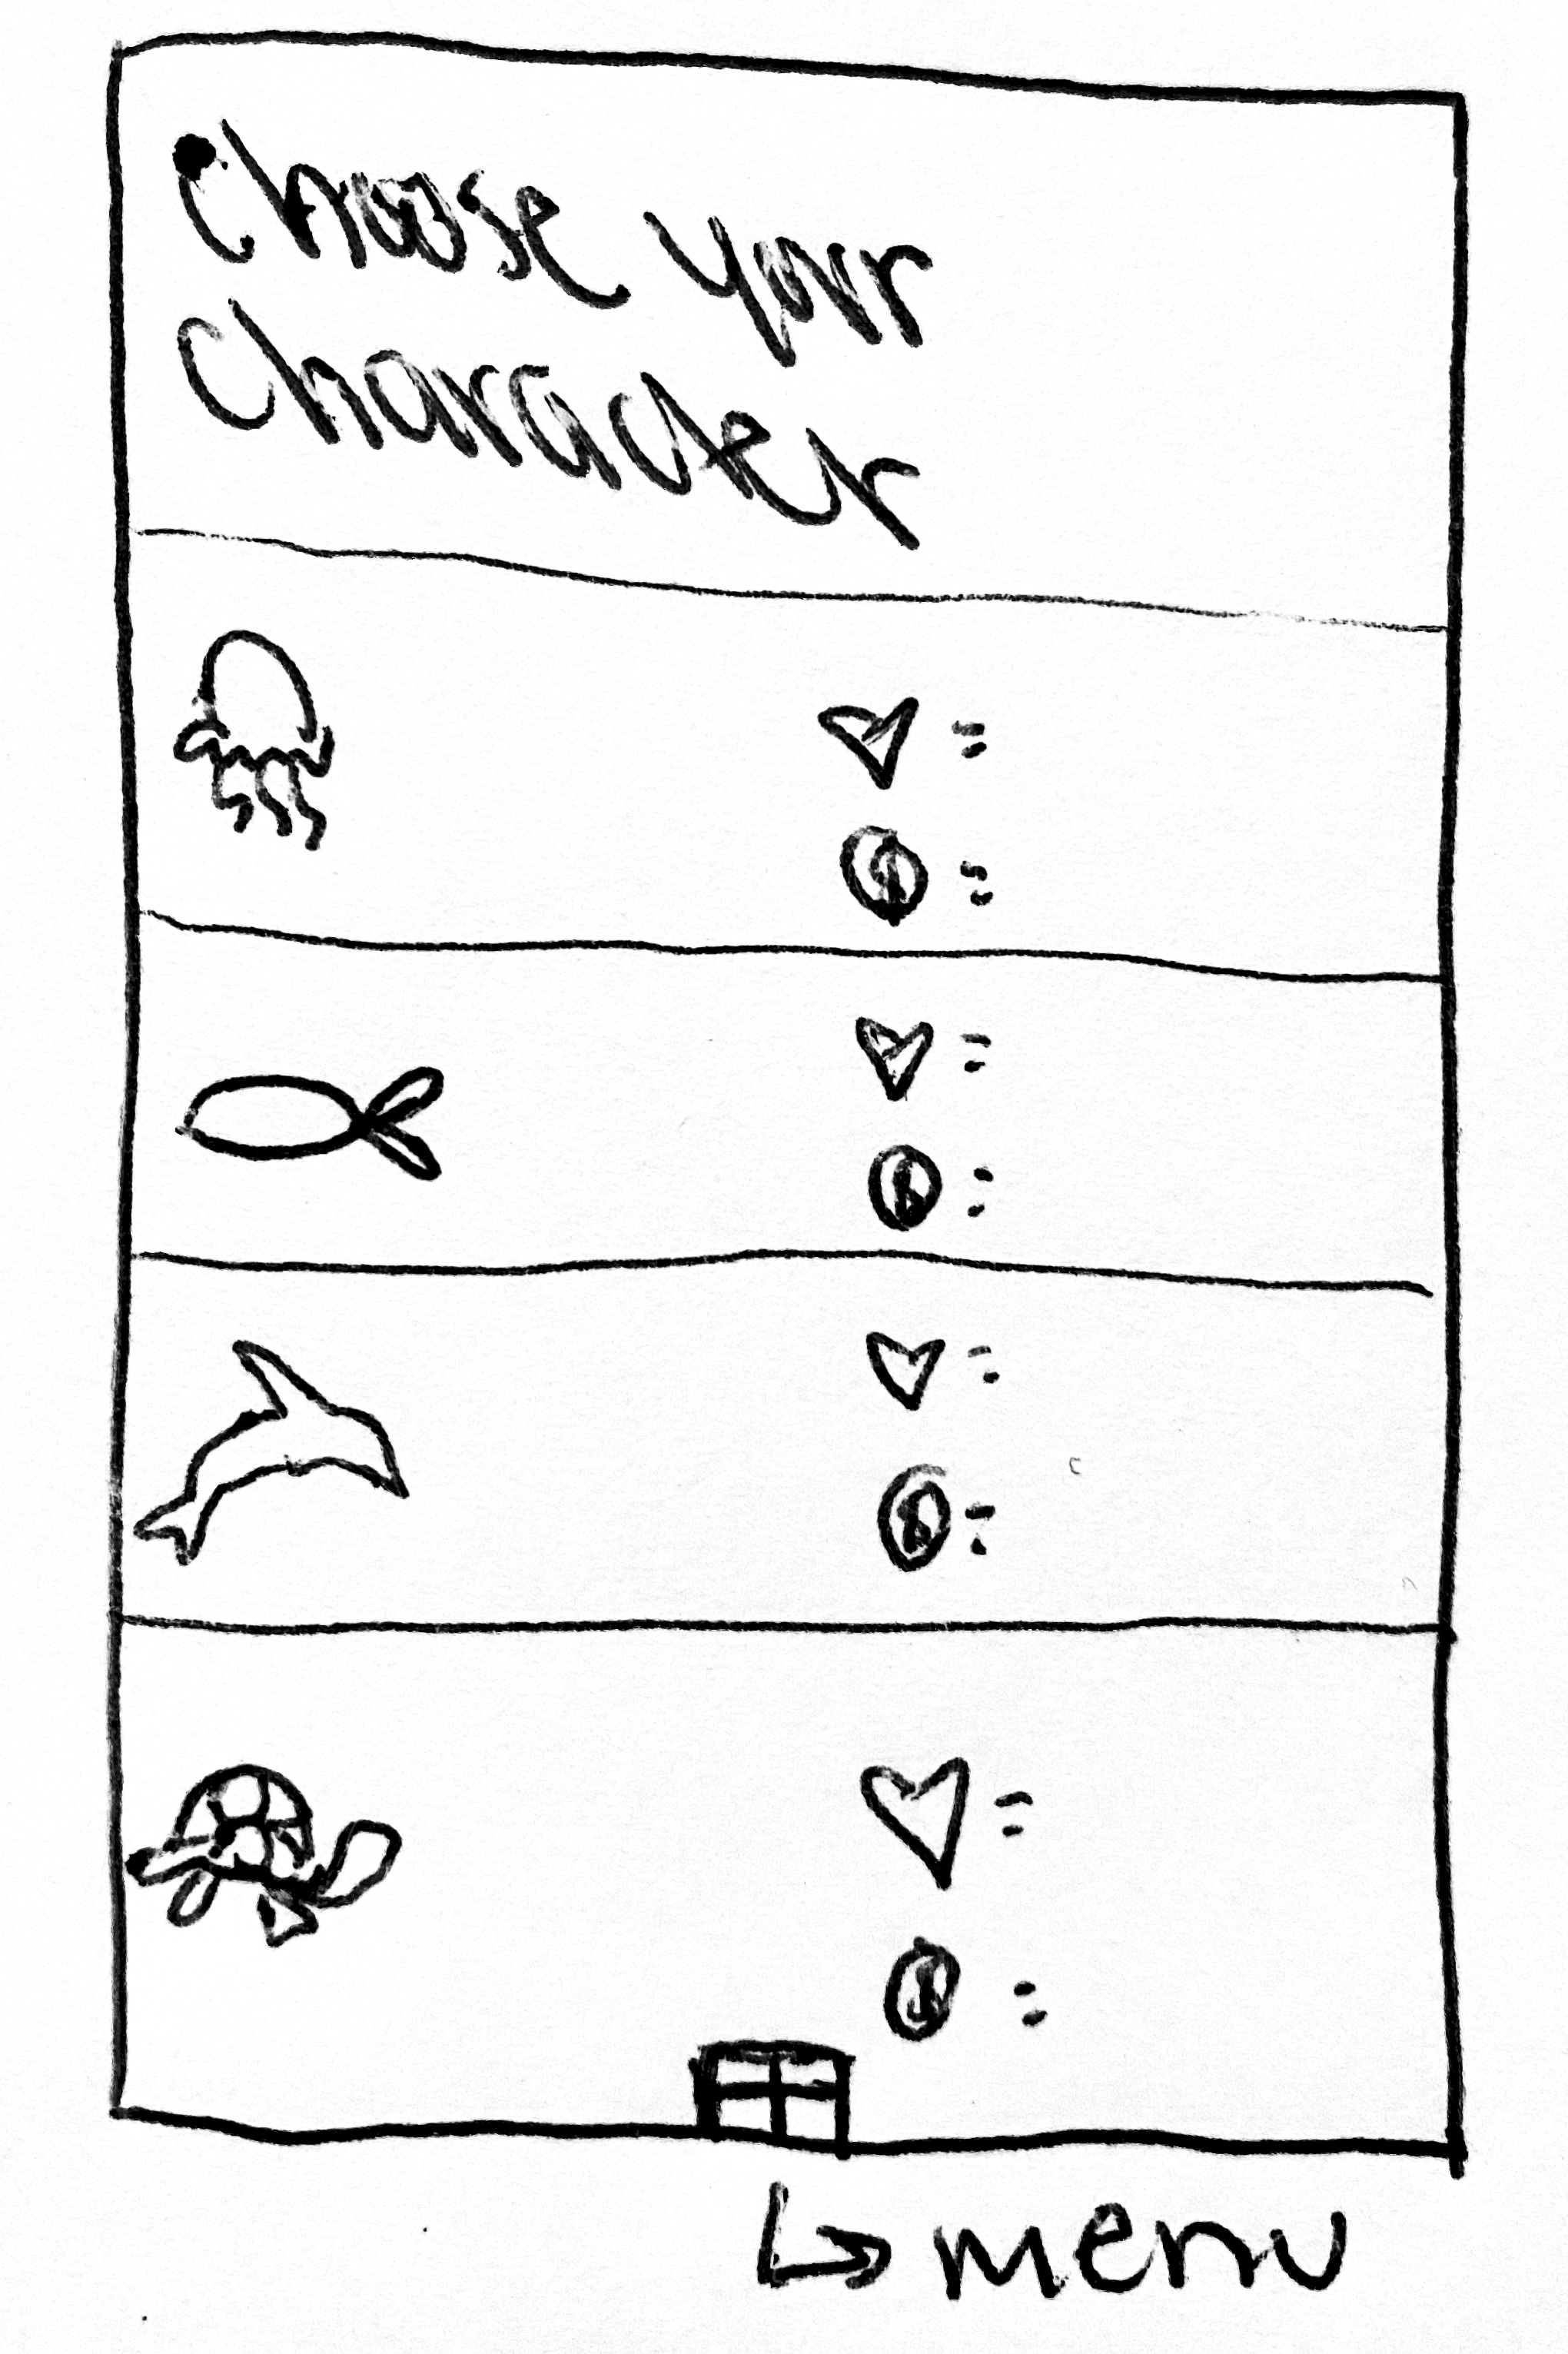 Choose your
Character
=
$ =
=
$ =
=
$ =
=
$ =
menu